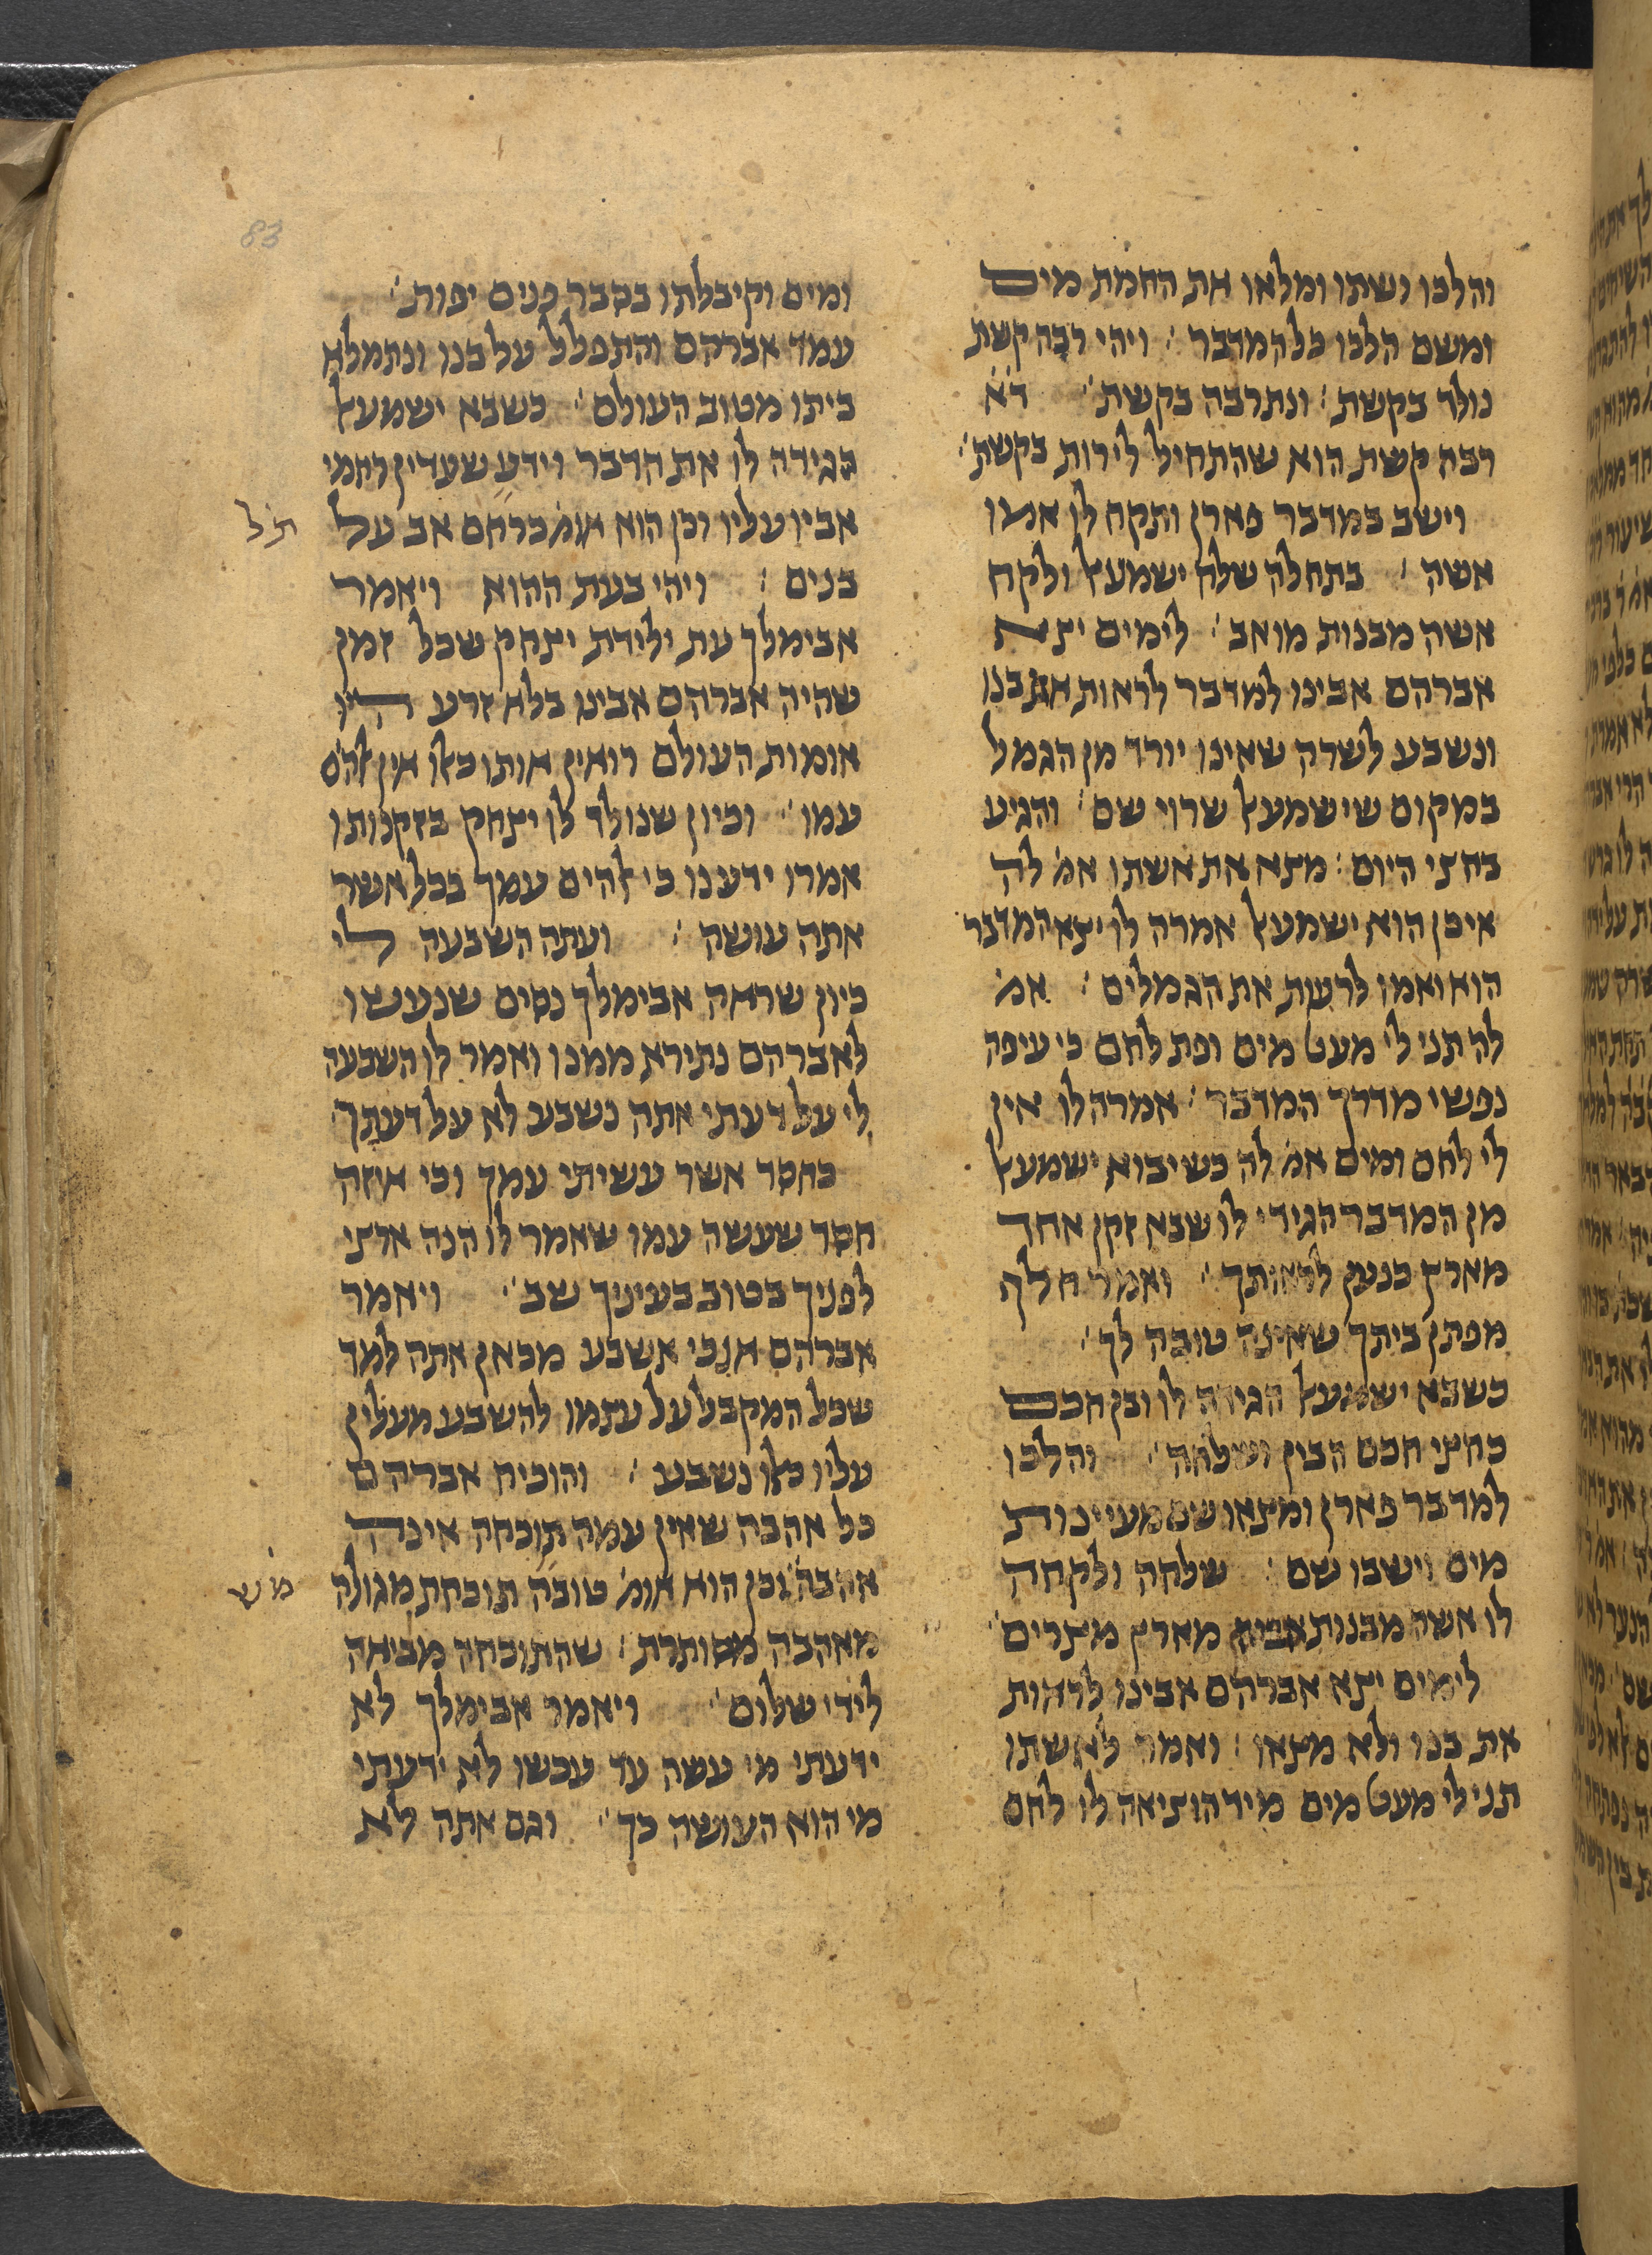 והלכו ושתו ומלאו את החמת מים
ומשם הלכו כל המדבר׃ ויהי רבה קשת
נולד בקשת׃ ונתרבה בקשת׃ ד׳א׳
רבה קשת הוא שהתחיל לירות בקשת׃
וישב במדבר פארן ותקח לו אמו
אשה׃ בתחלה שלח ישמעאל ולקח
אשה מבנות מואב׃ לימים יצא
אברהם אבינו למדבר לראות את בנו
ונשבע לשרה שאינו יורד מן הגמל
במקום שישמעאל שרוי שם׃ והגיע
בחצי היום׃ מצא את אשתו אמ׳ לה
איכן הוא ישמעאל אמרה לו יצא המדבר
הוא ואמו לרעות את הגמלים׃ אמ׳
לה תני לי מעט מים ופת לחם כי עיפה
נפשי מדרך המדבר׃ אמרה לו אין
לי לחם ומים אמ׳ לה כשיבוא ישמעאל
מן המדבר הגידי לו שבא זקן אחד
מארץ כנען לראותך׃ ואמר חלף
מפתן ביתך שאינה טובה לך׃
כשבא ישמעאל הגידה לו ובן חכם
כחצי חכם הבין ושלחה׃ והלכו
למדבר פארן ומצאו שם מעיינות
מים וישבו שם׃ שלחה ולקחה
לו אשה מבנות אביה מארץ מצרים׃
לימים יצא אברהם אבינו לראות
את בנו ולא מצאו׃ ואמר לאשתו
תני לי מעט מים מיד הוציאה לו לחם
83
ומים וקיבלתו בסבר פנים יפות׃
עמד אברהם והתפלל על בנו ונתמלא
ביתו מטוב העולם׃ כשבא ישמעאל
הגידה לו את הדבר וידע שעדיין רחמי
אביו עליו וכן הוא אומ׳ כרחם אב על
בנים׃ ויהי בעת ההוא ויאמר
אבימלך עת ילידת יצחק שכל זמן
שהיה אברהם אבינו בלא זרע היו
אומות העולם רואין אותו כאלו אין אלהים
עמו׃ וכיון שנולד לו יצחק בזקנותו
אמרו ידענו כי אלהים עמך בכל אשר
אתה עושה׃ ועתה השבעה לי
כיון שראה אבימלך נסים שנעשו
לאברהם נתירא ממנו ואמר לו השבעה
לי על דעתי אתה נשבע לא על דעתך
כחסד אשר עשיתי עמך וכי איזה
חסד שעשה עמו שאמר לו הנה ארצי
לפניך בטוב בעיניך שב׃ ויאמר
אברהם אנכי אשבע מכאן אתה למד
שכל המקבל על עצמו להשבע מעלין
עליו כאלו נשבע׃ והוכיח אברהם
כל אהבה שאין עמה תוכחה אינה
אהבה׃ וכן הוא אומ׳ טובה תוכחת מגולה
מאהבה מסותרת׃ שהתוכחה מביאה
לידי שלום׃ ויאמר אבימלך לא
ידעתי מי עשה עד עכשו לא ידעתי
מי הוא העושה כך׃ וגם אתה לא